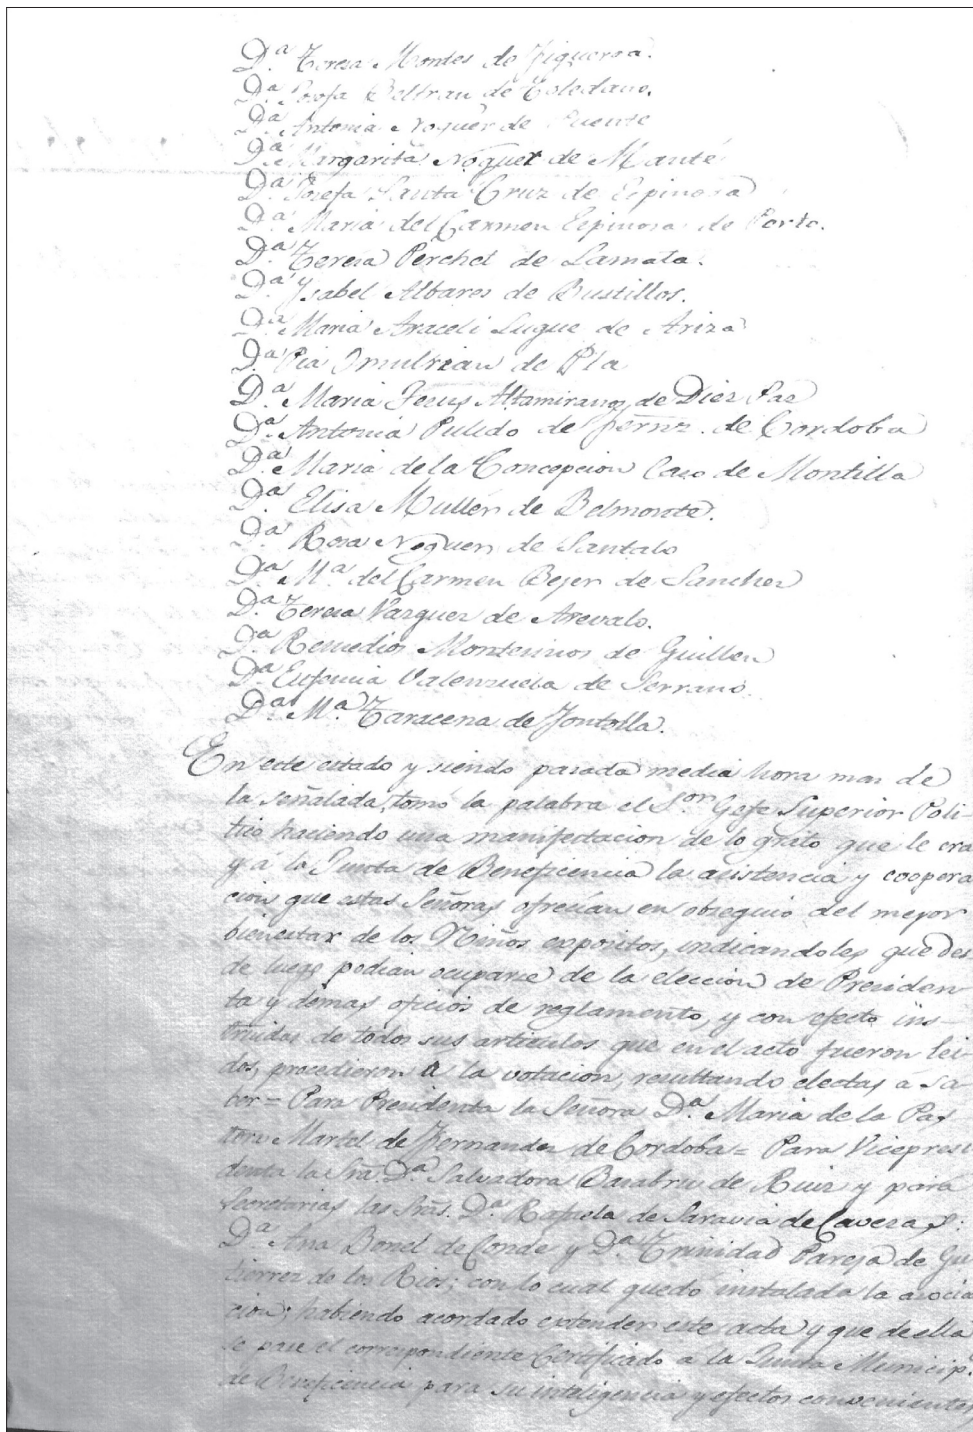 D.ª Teresa Montes de Figueroa.
D.ª Josefa Beltran de Toledano.
D.ª Antonia Noguer de Puente
D.ª Margarita Noguer de Manté
D.ª Josefa Santa Cruz de Espinosa
D.ª Maria del Carmen Espinosa de Porto.
D.ª Teresa Perchet de Lamata.
D.ª Ysabel Albares de Bustillos.
D.ª Maria Araceli Luque de Ariza
D.ª Pia de Pla
D.ª Maria Jesus Altamirano de Diez Paz
D.ª Antonia Pulido de Fernz. de Cordoba
D.ª Maria de la Concepcion Caro de Montilla
D.ª Elisa Mullér de Belmonte.
D.ª Rosa Noguer de Santalo
D.ª M.ª del Carmen Bejer de Sanchez
D.ª Teresa Vazquez de Arevalo.
D.ª Remedios Montesinos de Guillen
D.ª Eufemia Valenzuela de Serrano.
D.ª M.ª Taracena de Fontolla.
En este estado y siendo pasada media hora mas de
la señalada, tomó la palabra el S.or Gefe Superior Poli-
tico haciendo una manifestacion de lo grato que le era
y a la Junta de Beneficencia la asistencia y coopera
cion que estas Señoras ofrecian en obsequio del mejor
bienestar de los Niños expositos, indicandoles que des
de luego podian ocuparse de la eleccion de Presiden-
ta y demas oficios de reglamento, y con efecto ins-
truidas de todos sus articulos que en el acto fueron lei
dos, procedieron a la votacion, resultando electas á sa-
ber = Para Presidenta la Señora D.ª Maria de la Pas
tora Martel de Fernandez de Cordoba = Para Vicepresi
denta la Sra. D.ª Salvadora Barabru de Ruiz y para
Secretarias las Sras. D.ª Rafaela de Saravia de Cavezas:
D.ª Ana Bonel de Conde y D.ª Trinidad Pareja de Gu
tierrez de los Rios; con lo cual quedó instalada la asocia
cion; habiendo acordado extender este acta y que de ella
se pase el correspondiente Certificado a la Junta Municip.l
de Beneficencia para su inteligencia y efectos convenientes,